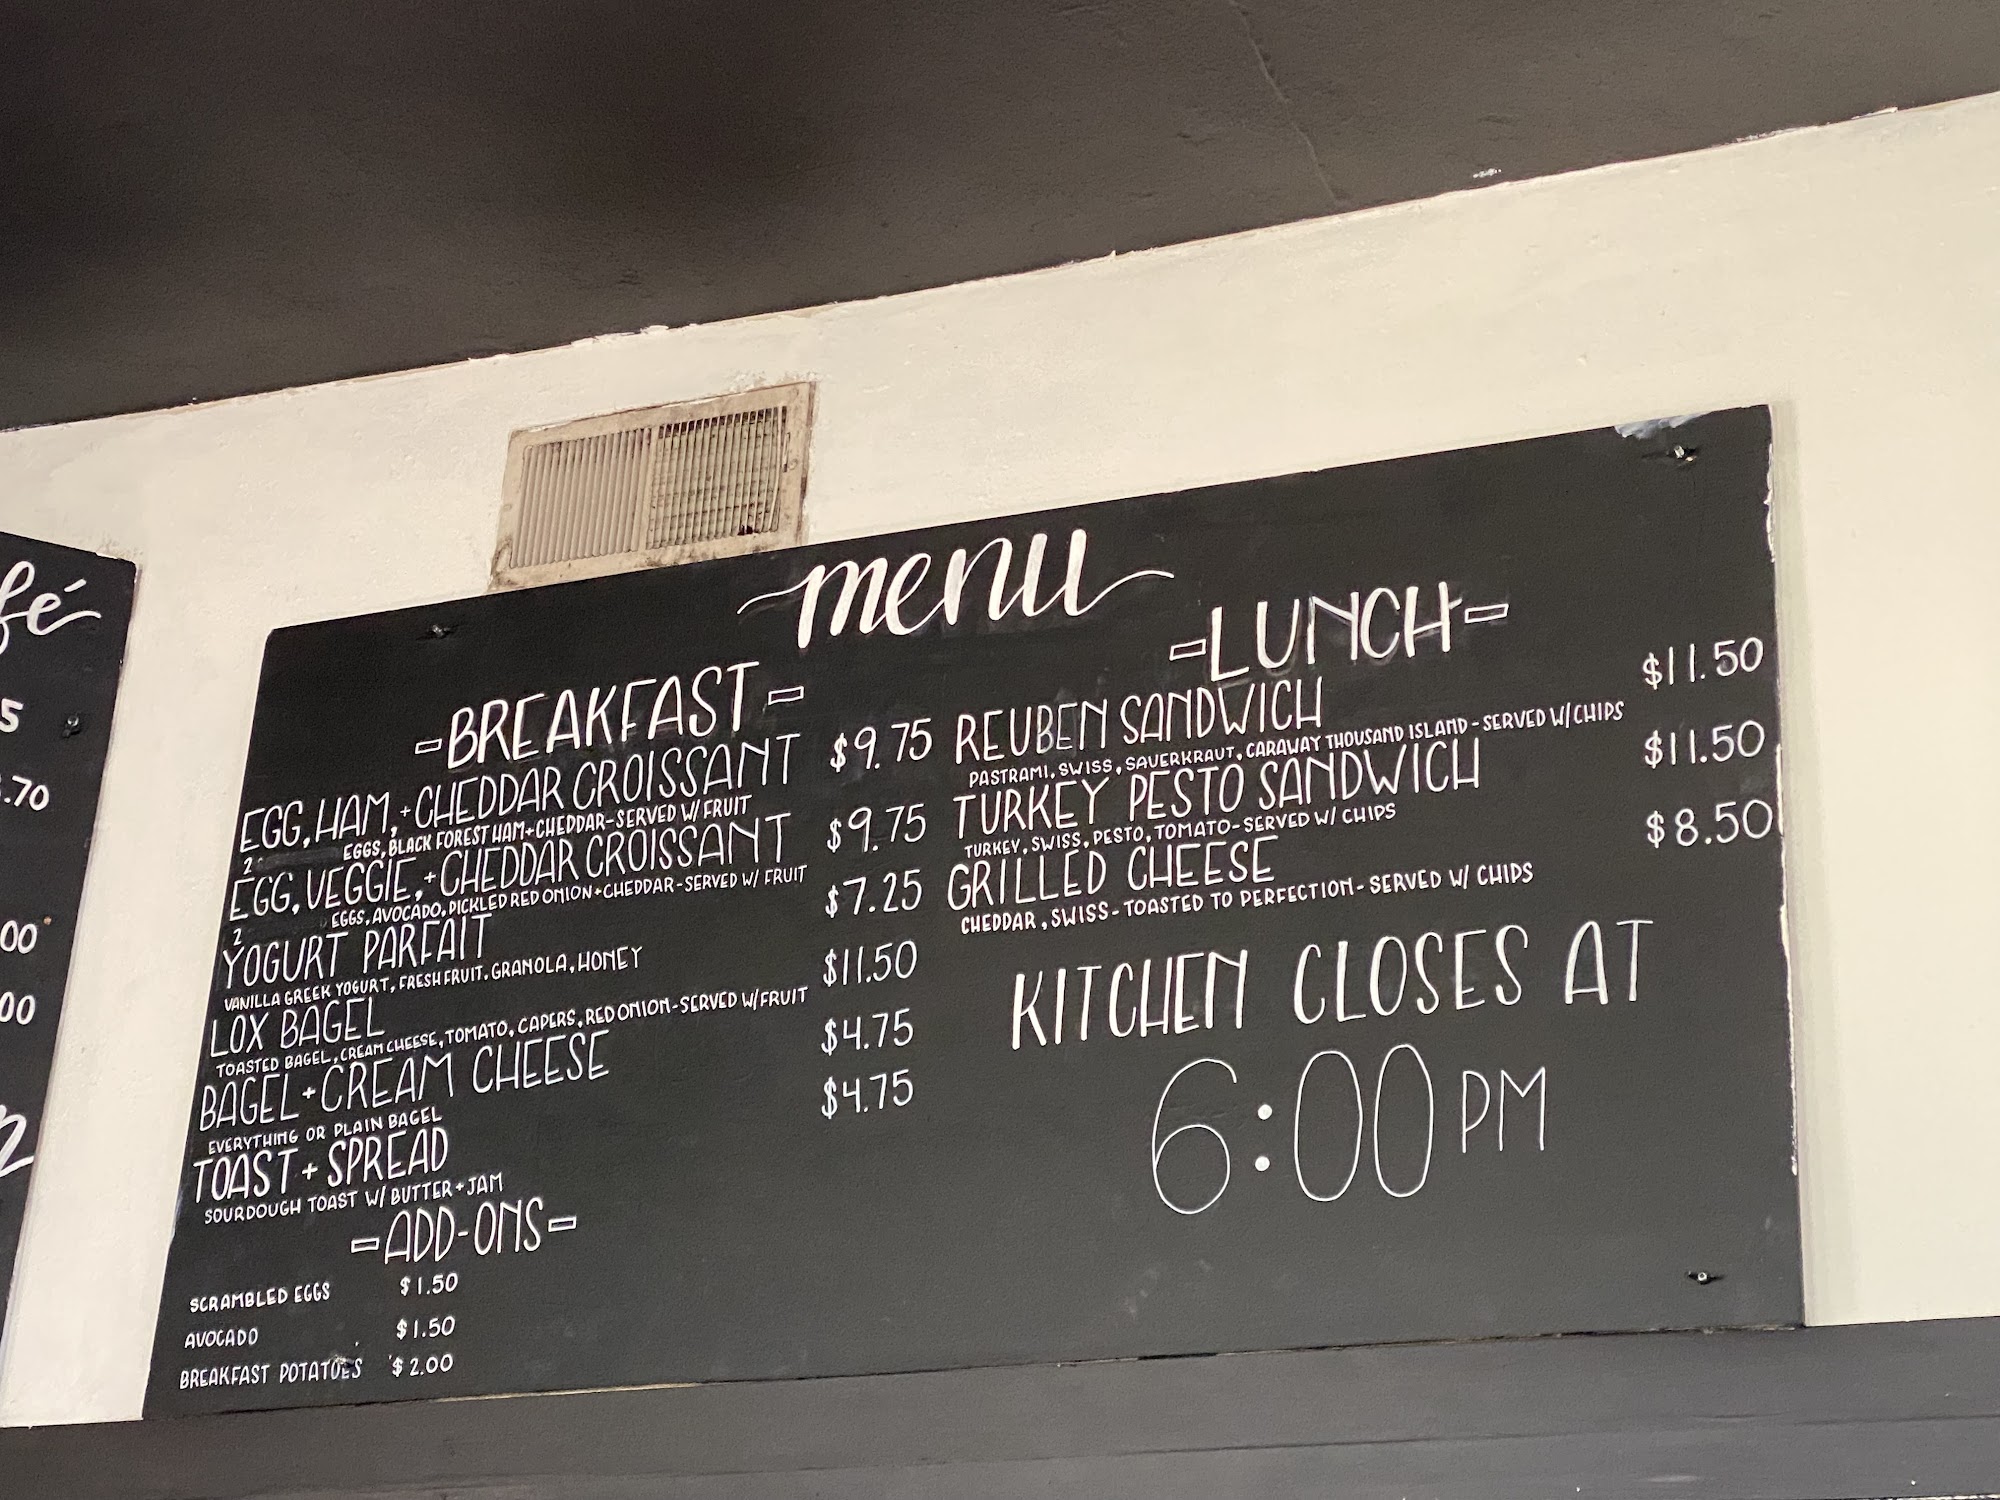 fé
5
.70
00
00
menu
-BREAKFAST-
EGG, HAM, + CHEDDAR CROISSANT $9.75
2 EGGS, BLACK FOREST HAM + CHEDDAR - SERVED W/ FRUIT
EGG, VEGGIE, + CHEDDAR CROISSANT $9.75
2 EGGS, AVOCADO, PICKLED RED ONION + CHEDDAR - SERVED W/ FRUIT
YOGURT PARFAIT $7.25
VANILLA GREEK YOGURT, FRESH FRUIT, GRANOLA, HONEY
LOX BAGEL $11.50
TOASTED BAGEL, CREAM CHEESE, TOMATO, CAPERS, RED ONION - SERVED W/ FRUIT
BAGEL + CREAM CHEESE $4.75
EVERYTHING OR PLAIN BAGEL
TOAST + SPREAD $4.75
SOURDOUGH TOAST W/ BUTTER + JAM
-ADD-ONS-
SCRAMBLED EGGS $1.50
AVOCADO $1.50
BREAKFAST POTATOES $2.00
-LUNCH-
REUBEN SANDWICH $11.50
PASTRAMI, SWISS, SAUERKRAUT, CARAWAY THOUSAND ISLAND - SERVED W/ CHIPS
TURKEY PESTO SANDWICH $11.50
TURKEY, SWISS, PESTO, TOMATO - SERVED W/ CHIPS
GRILLED CHEESE $8.50
CHEDDAR, SWISS - TOASTED TO PERFECTION - SERVED W/ CHIPS
KITCHEN CLOSES AT
6:00 PM